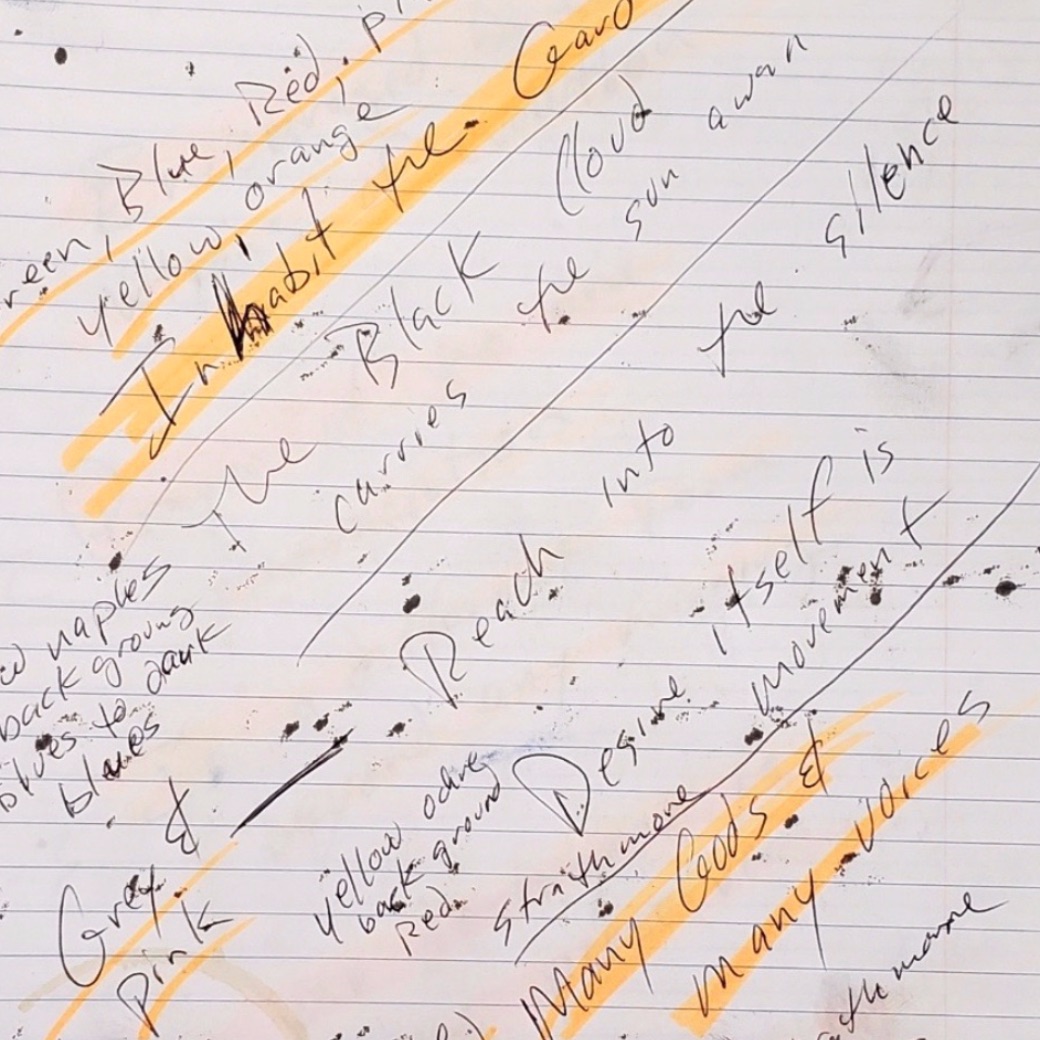 Blue, Red,
yellow, orange
Inhabit the
The Black Cloud
carries the sun away
Reach into the silence
naples
background
blues to dark
blues
Grey &
Pink
yellow ochre
background
Red
Desire itself is
movement
strathmore
Many Gods &
many voices